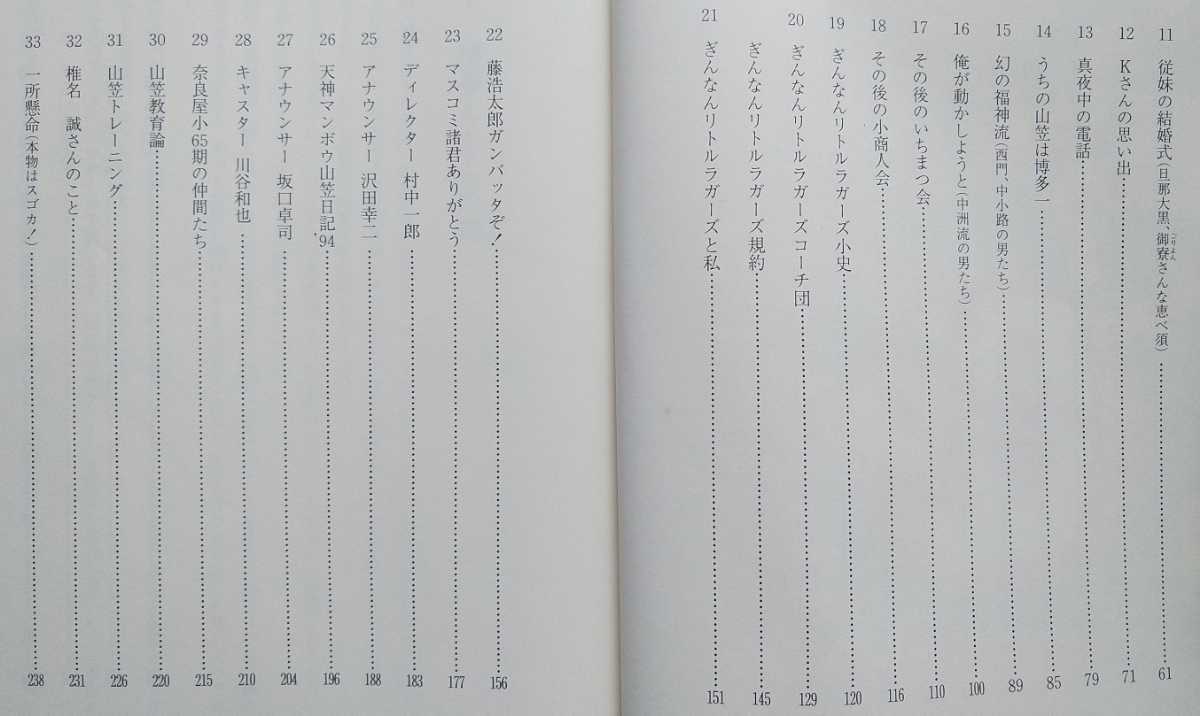 11 従妹の結婚式(旦那大黒、御寮さんな恵べ須) 61
ごりょん
12 Kさんの思い出 71
13 真夜中の電話 79
14 うちの山笠は博多一 85
15 幻の福神流(西門、中小路の男たち) 89
16 俺が動かしようと(中洲流の男たち) 100
17 その後のいちまつ会 110
18 その後の小商人会 116
19 ぎんなんリトルラガーズ小史 120
20 ぎんなんリトルラガーズコーチ団 129
ぎんなんリトルラガーズ規約 145
21 ぎんなんリトルラガーズと私 151
22 藤浩太郎ガンバッタぞ! 156
23 マスコミ諸君ありがとう 177
24 ディレクター 村中一郎 183
25 アナウンサー 沢田幸二 188
26 天神マンボウ山笠日記'94 196
27 アナウンサー 坂口卓司 204
28 キャスター 川谷和也 210
29 奈良屋小65期の仲間たち 215
30 山笠教育論 220
31 山笠トレーニング 226
32 椎名 誠さんのこと 231
33 一所懸命(本物はスゴカ!) 238